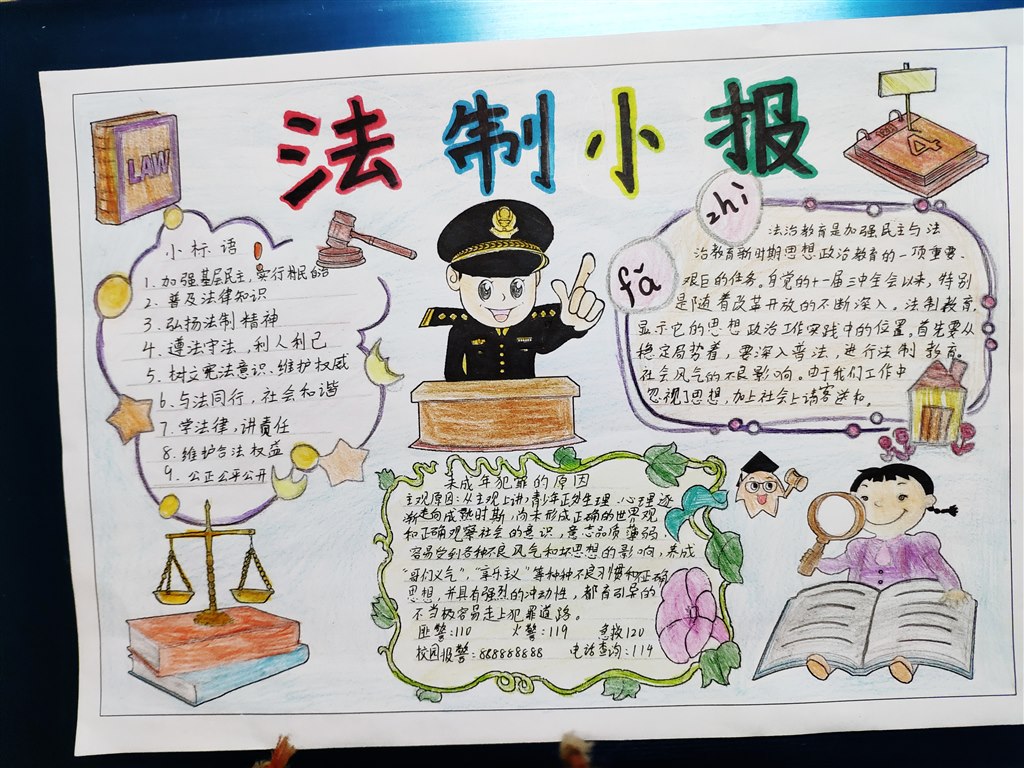 法制小报
LAW
小标语!
1.加强基层民主,实行村民自治
2.普及法律知识
3.弘扬法制精神
4.遵法守法,利人利己
5.树立宪法意识、维护权威
6.与法同行,社会和谐
7.学法律,讲责任
8.维护合法权益
9.公正公平公开
fǎ
zhì
法治教育是加强民主与法
治教育新时期思想政治教育的一项重要、
艰巨的任务。自党的十一届三中全会以来,特别
是随着改革开放的不断深入。法制教育,
显示它的思想政治工作实践中的位置,首先要从
稳定局势着,要深入普法,进行法制教育。
社会风气的不良影响。由于我们工作中
忽视了思想,加上社会上
未成年犯罪的原因
主观原因:从主观上讲,青少年正处生理、心理逐
渐走向成熟时斯,尚未形成正确的世界观
和正确观察社会的意识,意志品质薄弱,
容易受到各种不良风气和坏思想的影响,养成
"哥们义气","享乐主义"等种种不良习惯和
思想,并具有强烈的冲动性,都有引导的
不当极容易走上犯罪道路。
匪警:110 火警:119 急救120
校园报警:888888888 电话查询:114